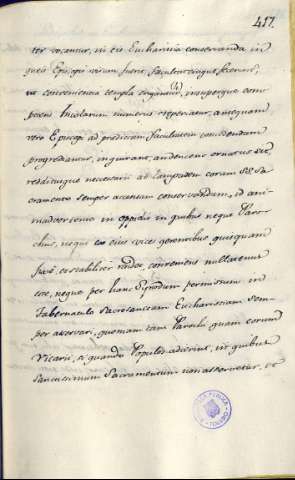 417.
ter vocantur, in eis Eucharistia conservanda in
quos Episcopi visum fuerit, facultatemque fecerint,
ut convenientia templa erigantur, insuperque com-
petens Incolarum numerus reperiatur, antequam
vero Episcopi ad predictam facultatem concedendam
progrediantur, inquirant, an decens ornatus sit,
redditusque necessarii ad lampadem coram SS. Sa-
cramento semper accensam conservandam, id ani-
madvertentes in oppidis in quibus neque Paro-
chus, neque ex eius vices gerentibus quisquam
fixè, et stabiliter resident, conveniens nullatenus
esse, neque per hanc Synodum permissum, in
Tabernaculo Sacrosanctam Eucharistiam sem-
per asservari, quoniam tam Parochi quam eorum
Vicarii, si quando Populos adierint, in quibus
Sanctissimum Sacramentum non asservetur, et